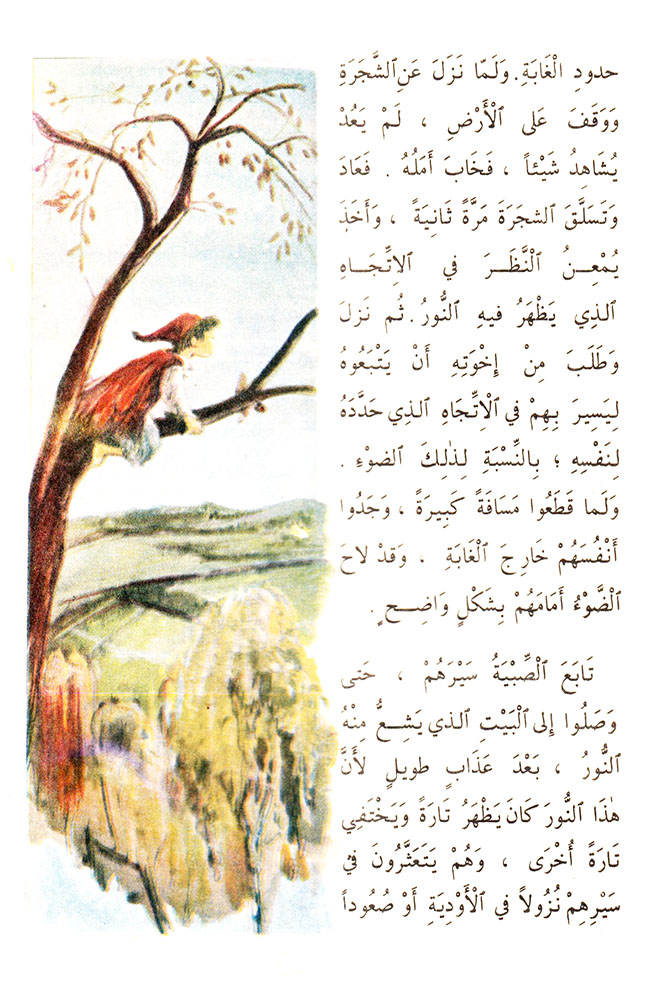 حدودِ الْغَابَةِ. وَلَمّا نَزَلَ عَنِ ٱلشَّجَرَةِ
وَوَقَفَ عَلى ٱلْأَرْضِ ، لَمْ يَعُدْ
يُشَاهِدُ شَيْئاً ، فَخَابَ أَمَلُهُ . فَعَادَ
وَتَسَلَّقَ ٱلشجَرَةَ مَرَّةً ثَانِيَةً ، وَأَخَذَ
يُمْعِـنُ ٱلْنَّظَـرَ في الِاتِّجَـاهِ
ٱلذِي يَظْهَرُ فيهِ ٱلنُّورُ. ثُم نَزلَ
وَطَلَبَ مِنْ إِخْوَتِهِ أَنْ يَتْبَعُوهُ
لِيَسِيرَ بِهِمْ في الْاتِّجَاهِ ٱلذِي حَدَّدَهُ
لِنَفْسِهِ ؛ بِالنِّسْبَةِ لِذٰلِكَ ٱلضوْءِ .
وَلَما قَطَعُوا مَسَافَةً كَبِيرَةً ، وَجَدُوا
أَنْفُسَهُمْ خَارِجَ ٱلْغَابَةِ ، وَقَدْ لاحَ
ٱلْضَّوْءُ أَمَامَهُمْ بِشَكْلٍ وَاضِـحٍ.
تَابَعَ ٱلْصِّبْيَةُ سَيْرَهُمْ ، حَتى
وَصَلُوا إِلى ٱلْبَيْتِ ٱلذي يَشِـعُّ مِنْهُ
ٱلنُّورُ ، بَعْدَ عَذَابٍ طويلٍ لأَنَّ
هٰذَا ٱلنُّورَ كَانَ يَظْهَرُ تَارَةً وَيَخْتَفِي
تَارَةً أُخْرَى ، وَهُمْ يَتَعَثَّرُونَ في
سَيْرِهِمْ نُزُولاً في ٱلْأَوْدِيَةِ أَوْ صُعُوداً